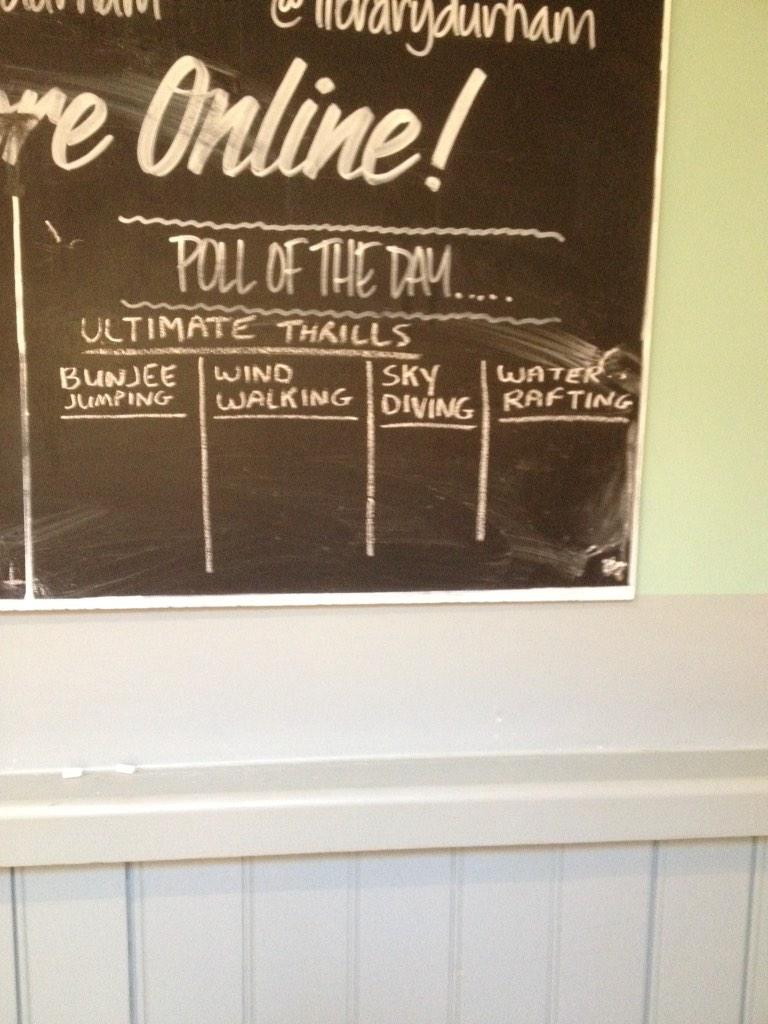 @librarydurham
re Online!
POLL OF THE DAY.....
ULTIMATE THRILLS
BUNJEE JUMPING
WIND WALKING
SKY DIVING
WATER RAFTING